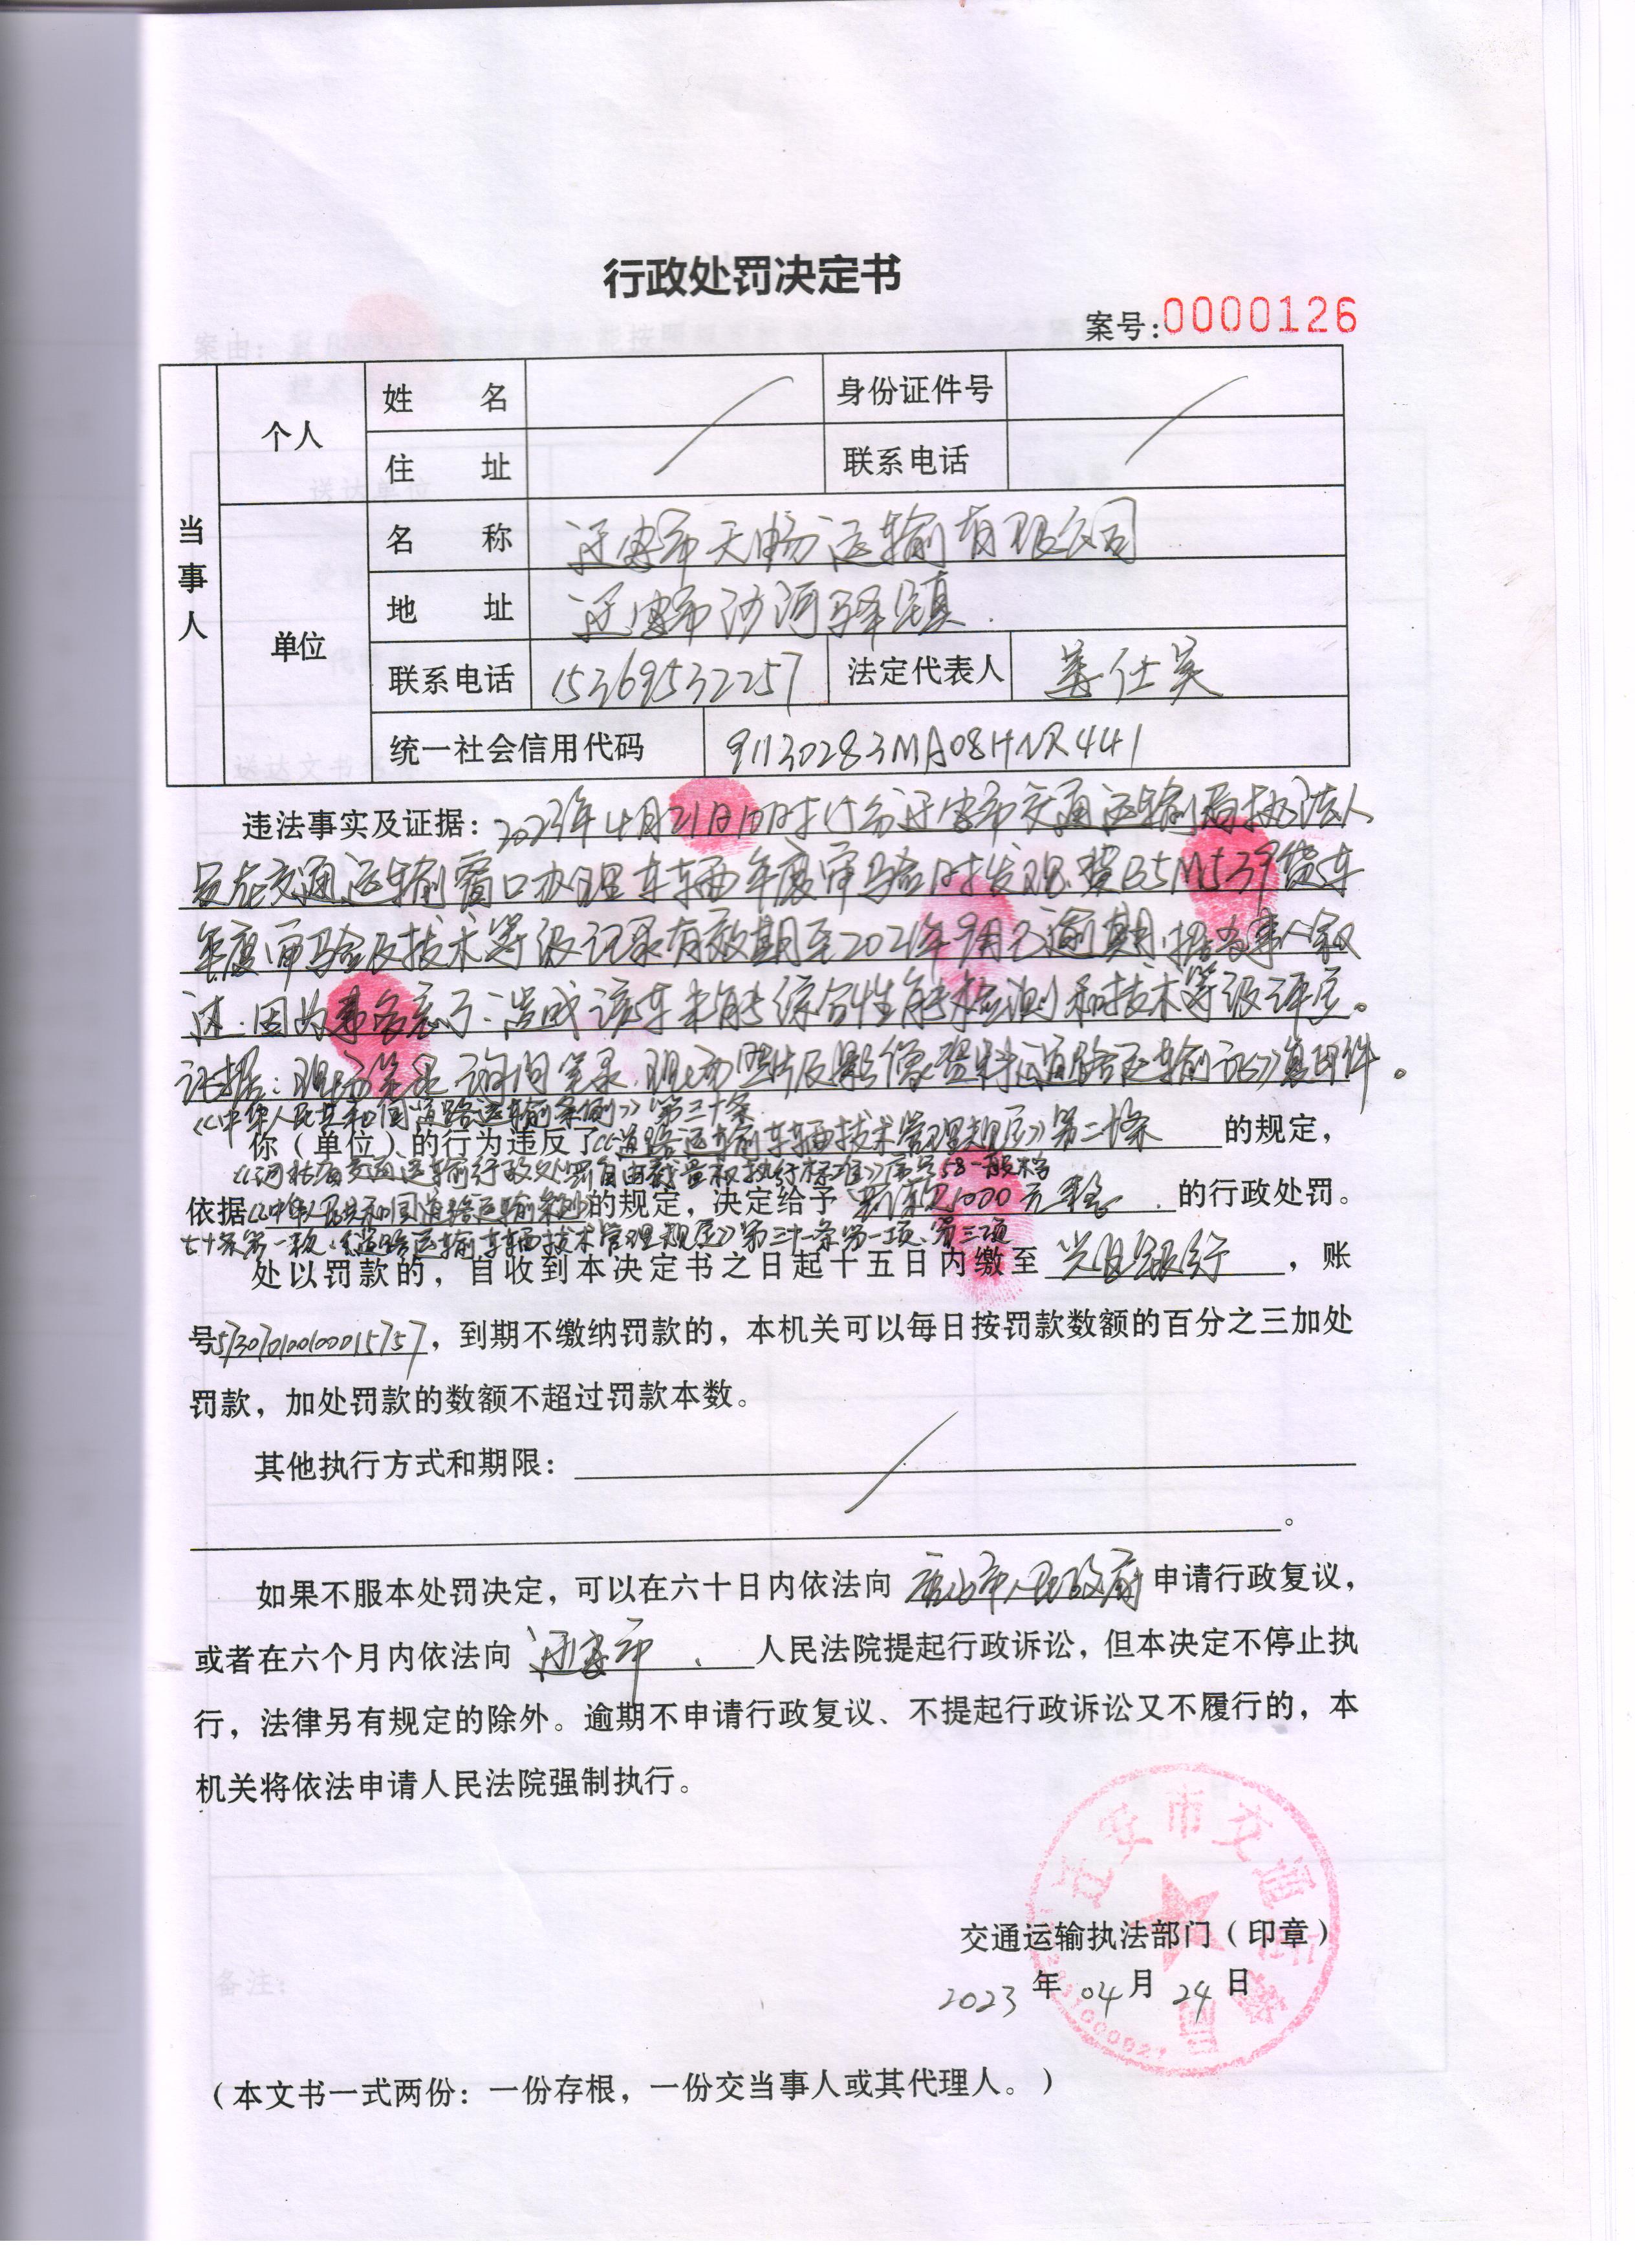 行政处罚决定书
案号:0000126
当事人
个人
姓 名
身份证件号
住 址
联系电话
单位
名 称 迁安市天畅运输有限公司
地 址 迁安市沙河驿镇
联系电话 15369532257 法定代表人 仕英
统一社会信用代码 91130283MA08HNR441
违法事实及证据:2023年4月21日10时15分迁安市交通运输局执法人
员在交通运输窗口办理车辆年度审验时发现冀B5M539货车
年度审验及技术等级记录有效期至2021年9月已逾期,据当事人叙
述,因为事多忘了,造成该车未能综合性能检测和技术等级评定。
证据:现场笔录、询问笔录、现场照片及影像资料、《道路运输证》复印件。
《中华人民共和国道路运输条例》第三十条
你(单位)的行为违反了《道路运输车辆技术管理规定》第二十条 的规定,
《河北省交通运输行政处罚自由裁量权执行标准》序号58一般档
依据《中华人民共和国道路运输条例》的规定,决定给予 罚款1000元整 的行政处罚。
七十条第一款、《道路运输车辆技术管理规定》第三十一条第一项、第三项
处以罚款的,自收到本决定书之日起十五日内缴至 光大银行 ,账
号57307010010015757,到期不缴纳罚款的,本机关可以每日按罚款数额的百分之三加处
罚款,加处罚款的数额不超过罚款本数。
其他执行方式和期限:
。
如果不服本处罚决定,可以在六十日内依法向 唐山市人民政府 申请行政复议,
或者在六个月内依法向 迁安市 人民法院提起行政诉讼,但本决定不停止执
行,法律另有规定的除外。逾期不申请行政复议、不提起行政诉讼又不履行的,本
机关将依法申请人民法院强制执行。
迁安市交通运输局
交通运输执法部门(印章)
2023 年 04 月 24 日
(本文书一式两份:一份存根,一份交当事人或其代理人。)